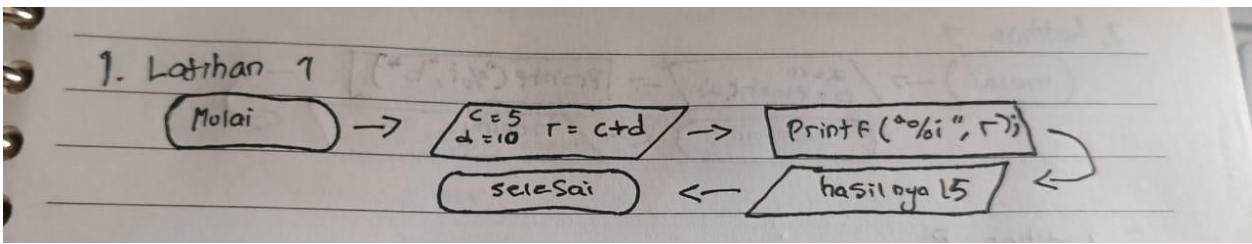 1. Latihan 1
Mulai
c = 5
d = 10
r = c+d
printf ("%i", r);
hasilnya 15
selesai